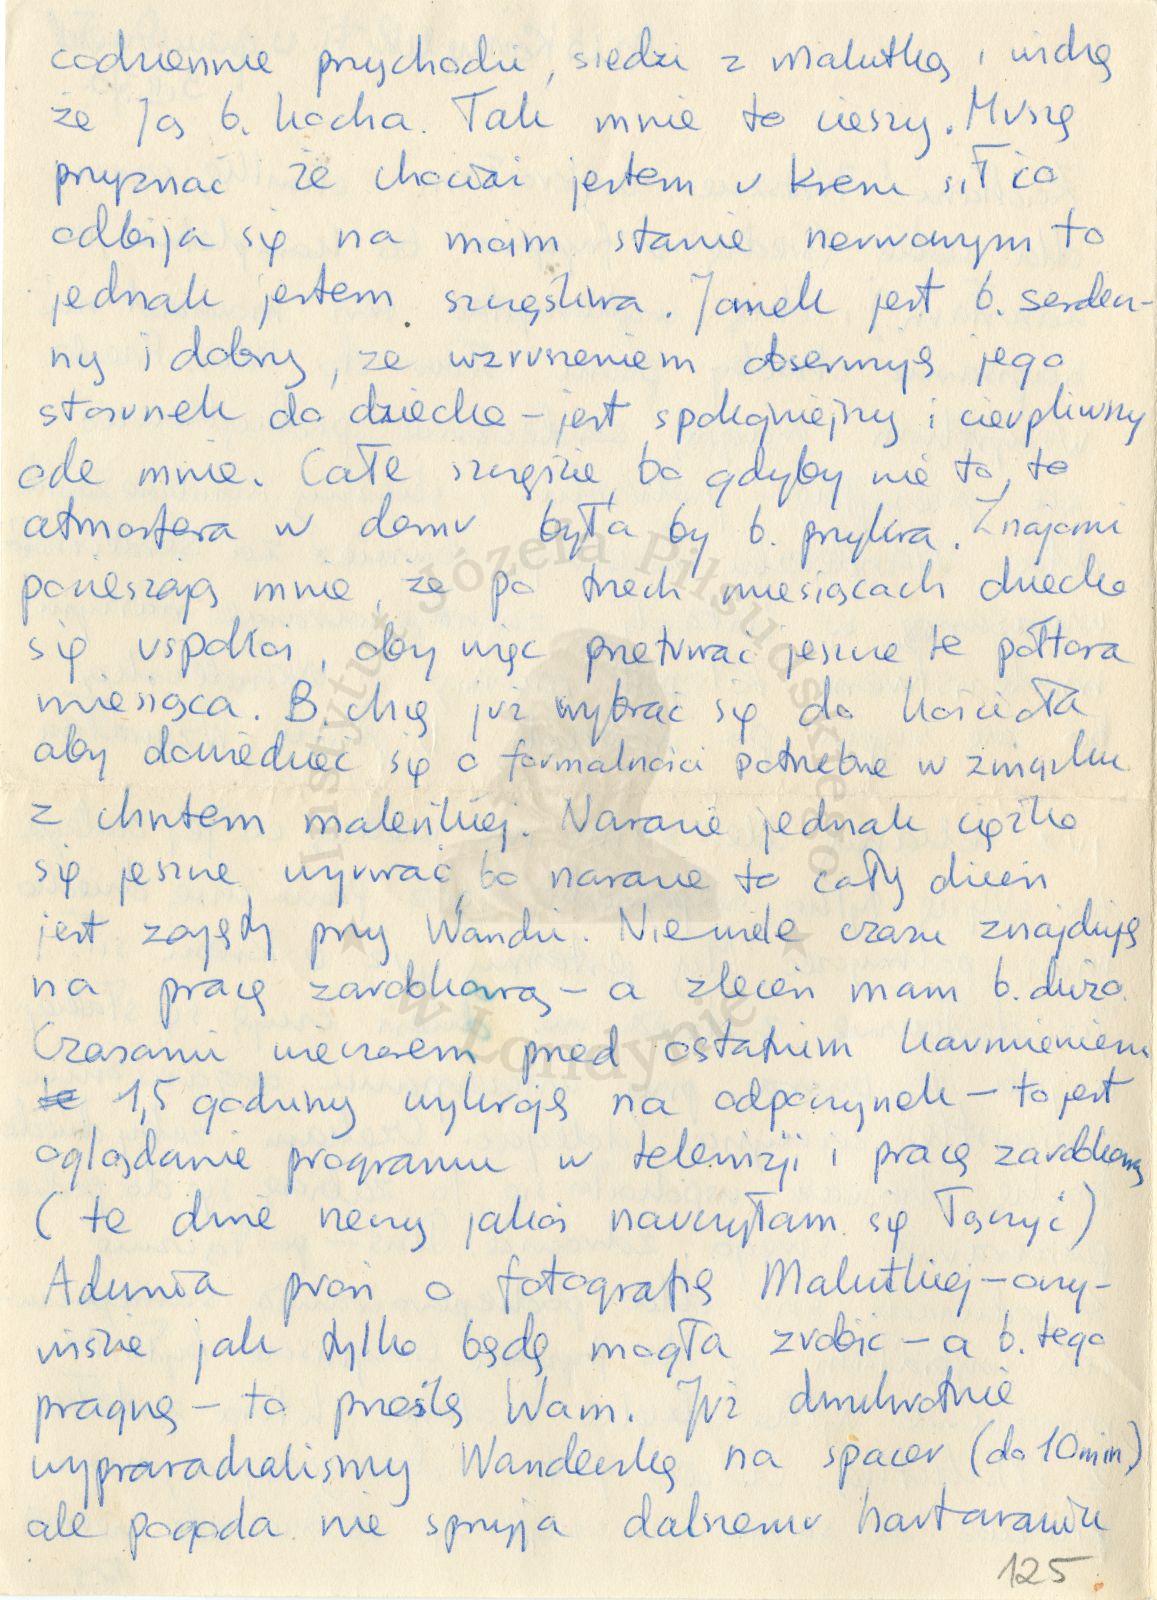 codziennie przychodzi, siedzi z Malutką i widzę
że Ją b. kocha. Tak mnie to cieszy. Muszę
przyznać że chociaż jestem u kresu sił co
odbija się na moim stanie nerwowym to
jednak jestem szczęśliwa. Janek jest b. serdecz-
ny i dobry, ze wzruszeniem obserwuję jego
stosunek do dziecka – jest spokojniejszy i cierpliwszy
ode mnie. Całe szczęście, bo gdyby nie to, to
atmosfera w domu była by b. przykra. Znajomi
pocieszają mnie, że po trzech miesiącach dziecko
się uspokoi, oby więc przetrwać jeszcze te półtora
miesiąca. B. chcę już wybrać się do kościoła
aby dowiedzieć się o formalności potrzebne w związku
z chrztem maleńkiej. Narazie jednak ciężko
się jeszcze wyrwać, bo narazie to cały dzień
jest zajęty przy Wandzi. Niewiele czasu znajduję
na pracę zarobkową – a zleceń mam b. dużo.
Czasami wieczorem przed ostatnim karmieniem
1,5 godziny wykroję na odpoczynek – to jest
oglądanie programu w telewizji i pracę zarobkową
(te dwie rzeczy jakoś nauczyłam się łączyć)
Adunia prosi o fotografię Malutkiej – oczy-
wiście jak tylko będę mogła zrobić – a b. tego
pragnę – to prześlę Wam. Już dwukrotnie
wyprowadzaliśmy Wandeczkę na spacer (do 10 min)
ale pogoda nie sprzyja dalszemu hartowaniu
125.
Instytut Józefa Piłsudskiego
w Londynie